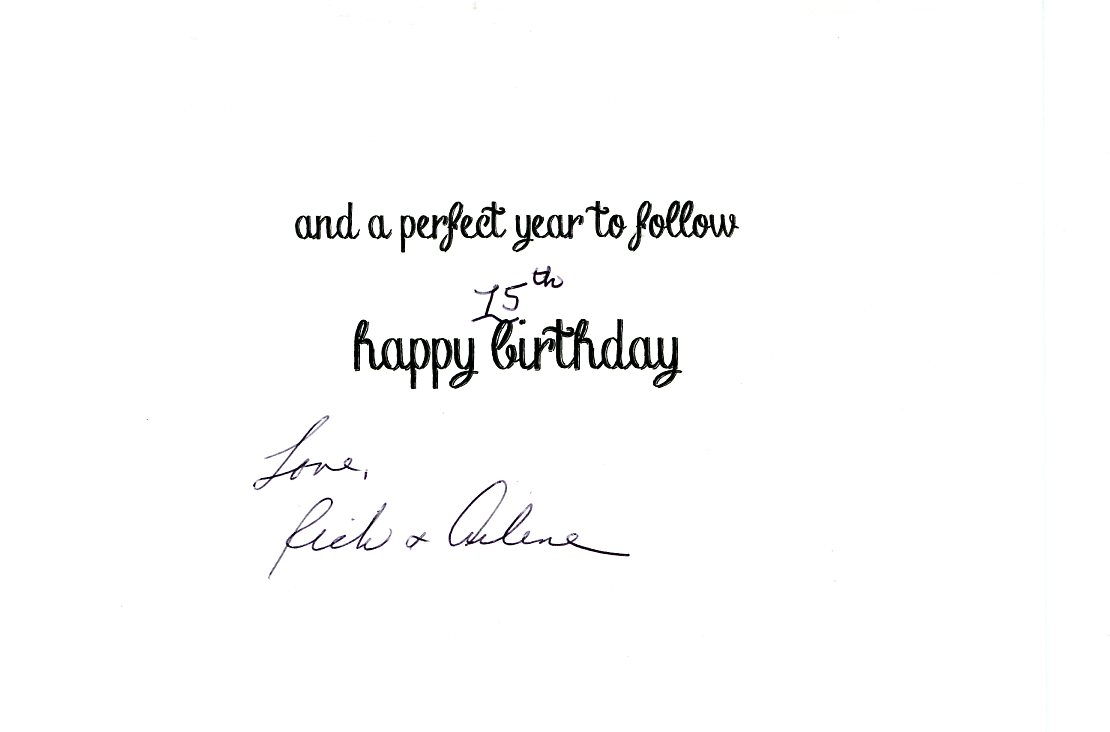 and a perfect year to follow
75th
happy birthday
Love,
Rich & Arlene